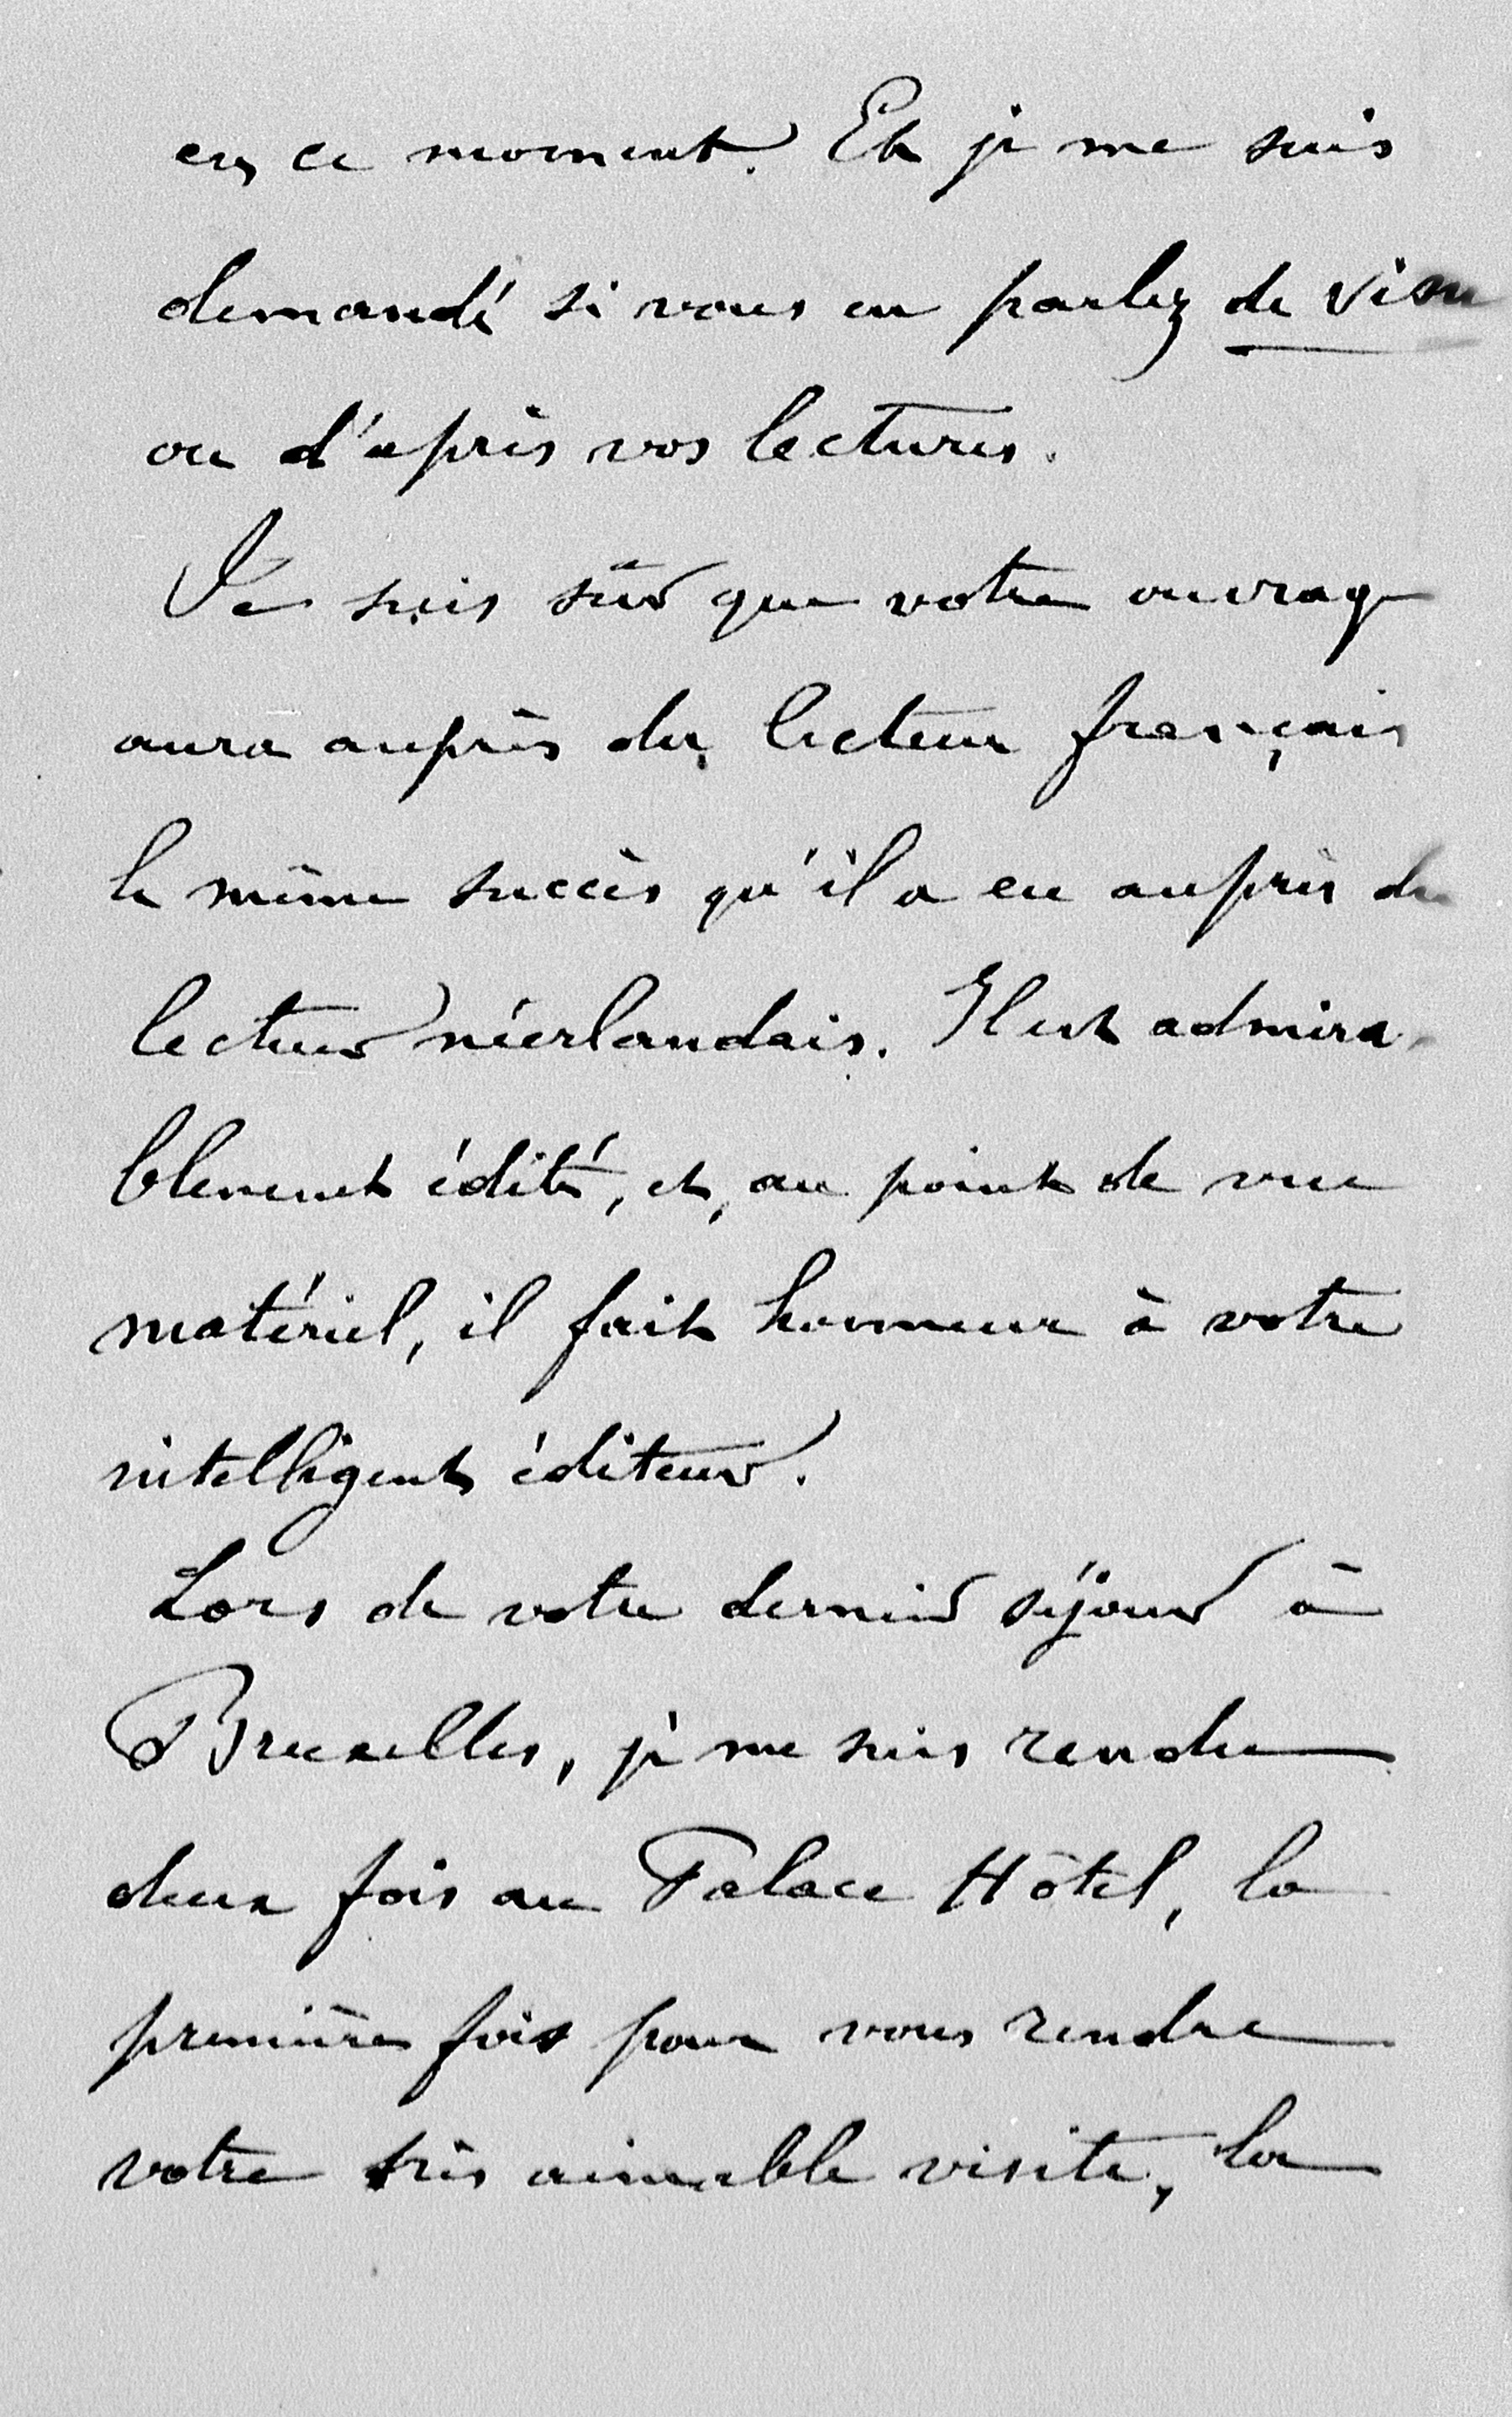 en ce moment. Et je me suis
demandé si vous en parlez de visu
ou d'après vos lectures.
Je suis sûr que votre ouvrage
aura auprès du lecteur français
le même succès qu'il a eu auprès du
lecteur néerlandais. Il est admira-
blement édité, et, au point de vue
matériel, il fait honneur à votre
intelligent éditeur.
Lors de votre dernier séjour à
Bruxelles, je me suis rendu
deux fois au Palace Hôtel, la
première fois pour vous rendre
votre très aimable visite, la